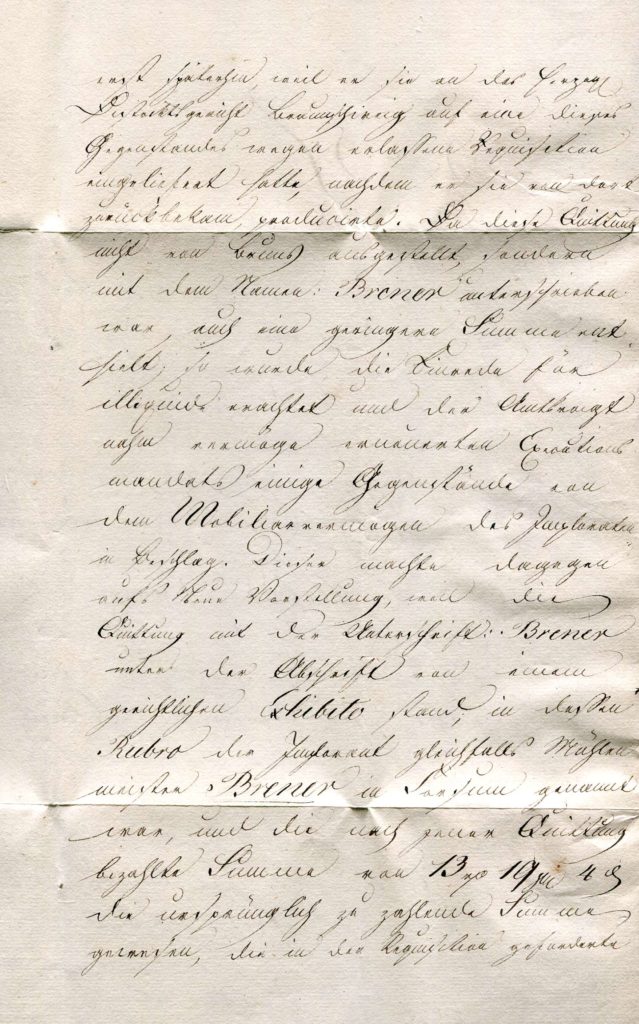 erst späterhin, weil er sie an das Herzogl.
Districtsgericht Braunschweig auf eine dieses
Gegenstandes wegen erlassene Requisition
eingeliefert hatte, nachdem er sie von dort
zurückbekam, producirte. Da diese Quittung
nicht von Bruns ausgestellt, sondern
mit dem Namen: Brener unterschrieben
war, auch eine geringere Summe ent-
hielt; so wurde die Einrede für
illiquide erachtet und der Amtsvoigt
nahm vermöge erneuerten Executions
mandats einige Gegenstände von
dem Mobiliarvermögen des Imploraten
in Beschlag. Dieser machte dagegen
aufs Neue Vorstellung, weil die
Quittung mit der Unterschrift: Brener
unter der Abschrift von einem
gerichtlichen Exhibito stand, in dessen
Rubro der Implorant gleichfalls Mühlen
meister Brener in genannt
war, und die nach jener Quittung
bezahlte Summe von 13 19 4
die ursprünglich zu zahlende Summe
gewesen, die in der Requisition geforderte